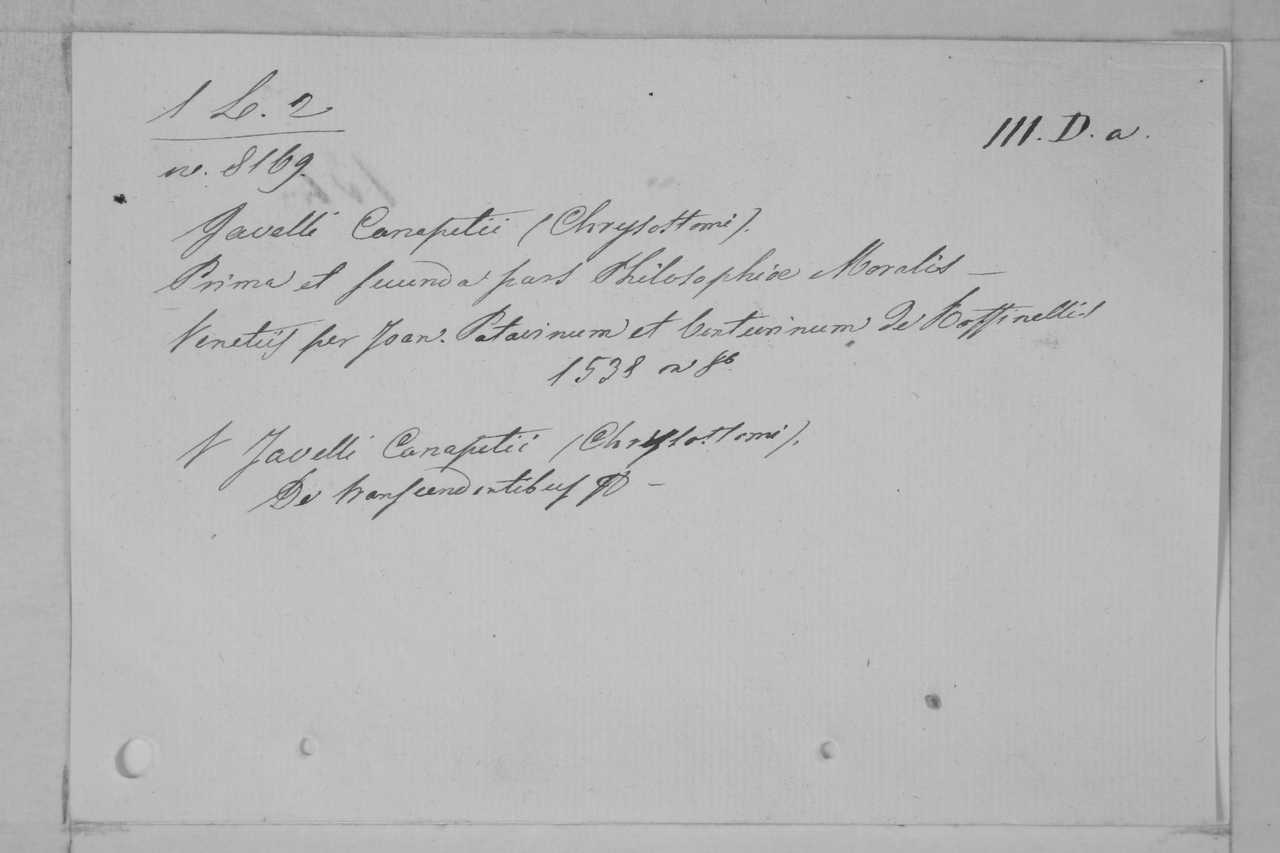 1 L. 2
III. D. a.
no. 8169.
Javelli Canapitii (Chrysostomi).
Prima et secunda pars Philosophiæ Moralis —
Venetiis per Joan. Patavinum et Venturinum de Roffinellis
1538 in 8º
V Javelli Canapitii (Chrysostomi).
De transcendentibus